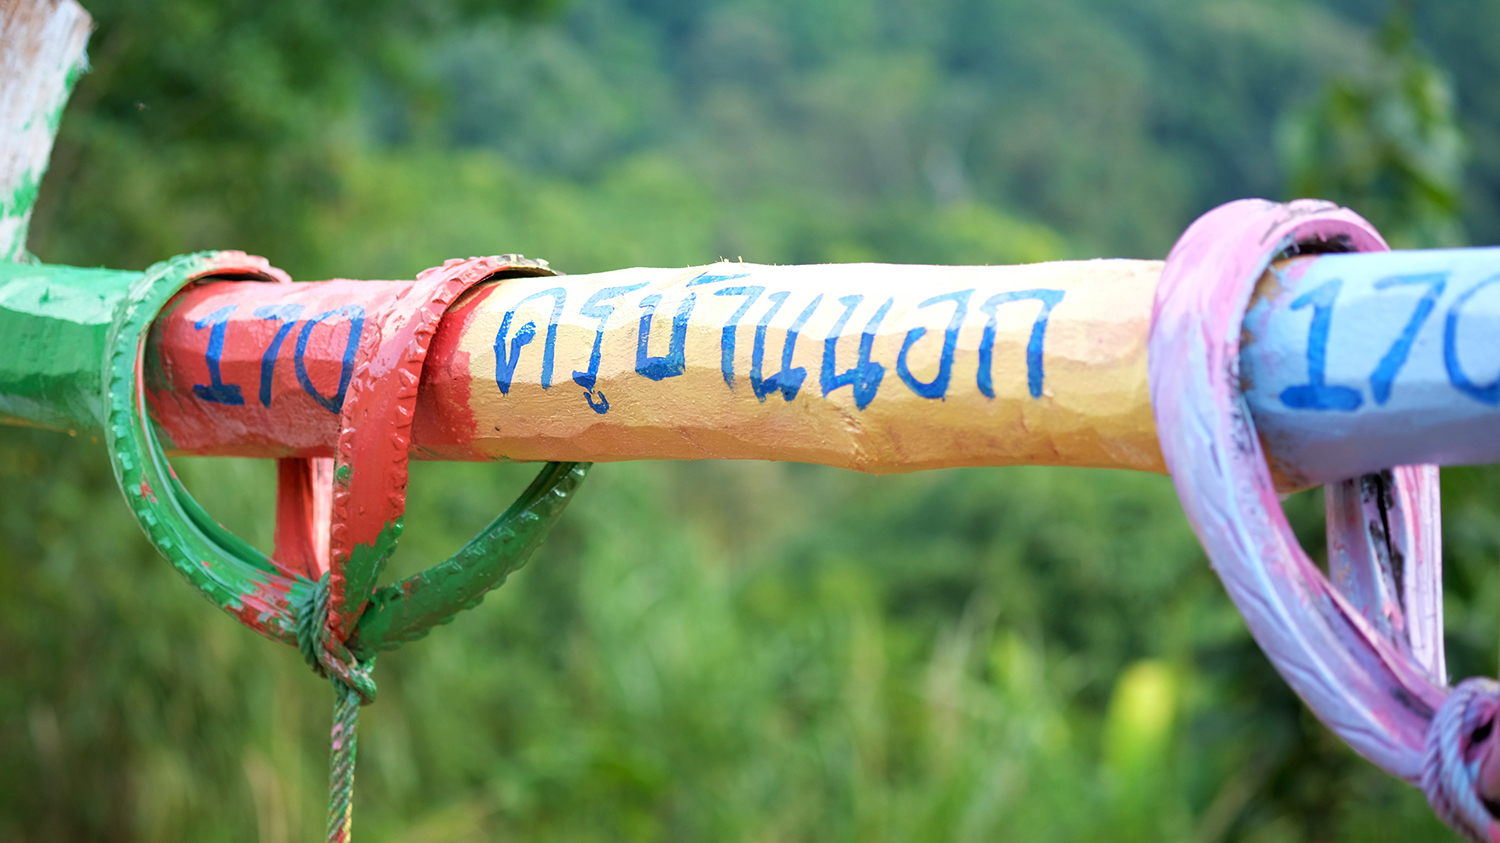 170 ครูบ้านนอก 170